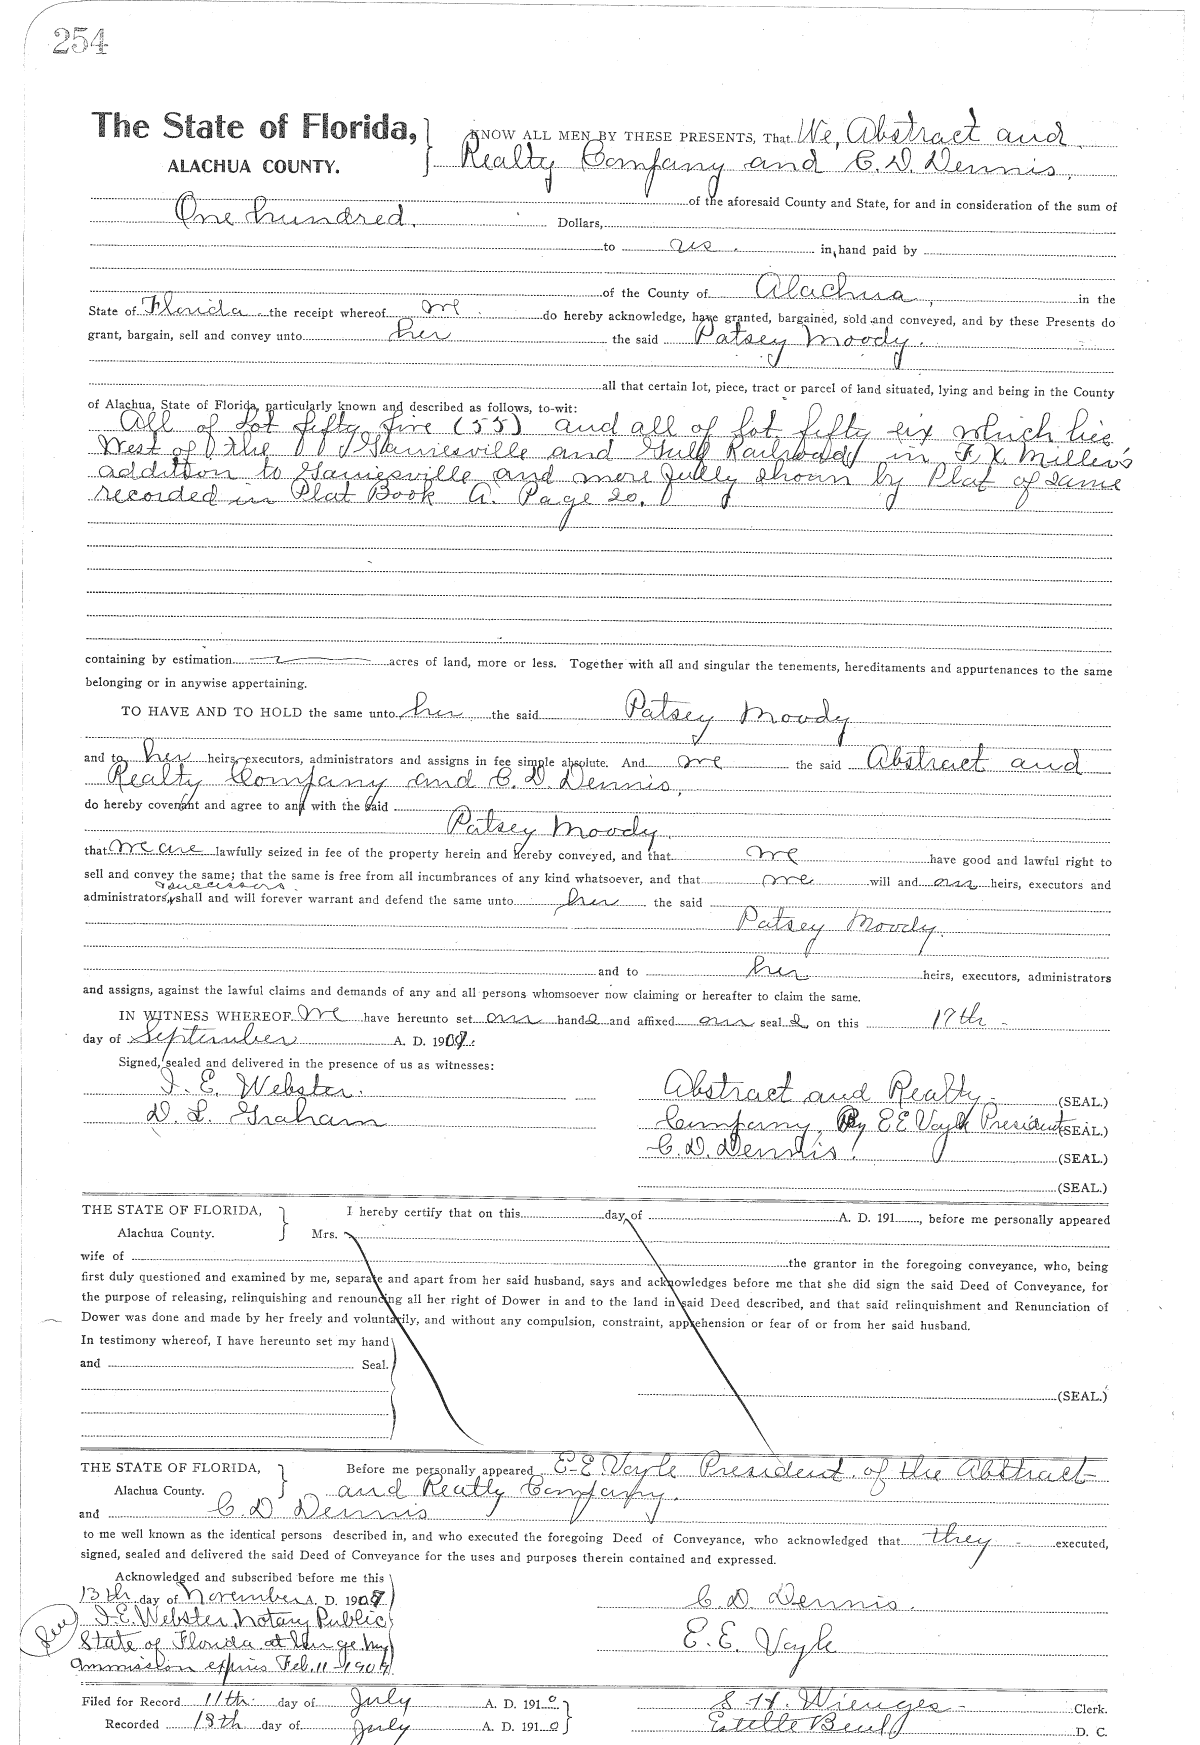 254
The State of Florida,
ALACHUA COUNTY.
KNOW ALL MEN BY THESE PRESENTS, That We, Abstract and
Realty Company and C. D. Dennis,
of the aforesaid County and State, for and in consideration of the sum of
One hundred. Dollars,
to us. in hand paid by
of the County of Alachua, in the
State of Florida the receipt whereof we do hereby acknowledge, have granted, bargained, sold and conveyed, and by these Presents do
grant, bargain, sell and convey unto her the said Patsey Moody.
all that certain lot, piece, tract or parcel of land situated, lying and being in the County
of Alachua, State of Florida, particularly known and described as follows, to-wit:
All of Lot fifty five (55) and all of Lot fifty six which lies
West of the Gainesville and Gulf Railroad in F. X. Miller's
addition to Gainesville and more fully shown by Plat of same
recorded in Plat Book A. Page 20.
containing by estimation acres of land, more or less. Together with all and singular the tenements, hereditaments and appurtenances to the same
belonging or in anywise appertaining.
TO HAVE AND TO HOLD the same unto her the said Patsey Moody
and to her heirs, executors, administrators and assigns in fee simple absolute. And we the said Abstract and
Realty Company and C. D. Dennis,
do hereby covenant and agree to and with the said
Patsey Moody.
that we are lawfully seized in fee of the property herein and hereby conveyed, and that we have good and lawful right to
sell and convey the same; that the same is free from all incumbrances of any kind whatsoever, and that we will and our heirs, executors and
successors
administrators, shall and will forever warrant and defend the same unto her the said
Patsey Moody.
and to her heirs, executors, administrators
and assigns, against the lawful claims and demands of any and all persons whomsoever now claiming or hereafter to claim the same.
IN WITNESS WHEREOF We have hereunto set our hands and affixed our seals, on this 17th
day of September A. D. 1909.
Signed, sealed and delivered in the presence of us as witnesses:
I. E. Webster. Abstract and Realty (SEAL.)
D. L. Graham Company, By E E Voyle President (SEAL.)
C. D. Dennis. (SEAL.)
(SEAL.)
THE STATE OF FLORIDA,
Alachua County.
I hereby certify that on this day of A. D. 191 , before me personally appeared
Mrs.
wife of the grantor in the foregoing conveyance, who, being
first duly questioned and examined by me, separate and apart from her said husband, says and acknowledges before me that she did sign the said Deed of Conveyance, for
the purpose of releasing, relinquishing and renouncing all her right of Dower in and to the land in said Deed described, and that said relinquishment and Renunciation of
Dower was done and made by her freely and voluntarily, and without any compulsion, constraint, apprehension or fear of or from her said husband.
In testimony whereof, I have hereunto set my hand
and Seal.
(SEAL.)
THE STATE OF FLORIDA,
Alachua County.
Before me personally appeared E-E Voyle President of the Abstract
and Realty Company.
and C D Dennis
to me well known as the identical persons described in, and who executed the foregoing Deed of Conveyance, who acknowledged that they executed,
signed, sealed and delivered the said Deed of Conveyance for the uses and purposes therein contained and expressed.
Acknowledged and subscribed before me this
13th day of November A. D. 1909 C D Dennis.
I. E. Webster, Notary Public E. E. Voyle
State of Florida at large my
commission expires Feb. 11-1909
Filed for Record 11th day of July A. D. 1910 S. H. Wienges Clerk.
Recorded 18th day of July A. D. 1910 Estelle D. C.